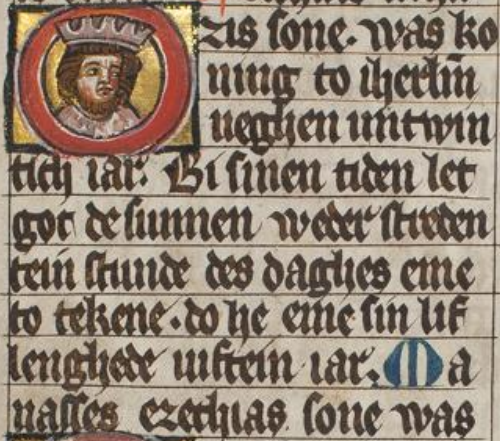 Ozias sone. was ko
ning to iherlm̄
neghen untwin
tich iar. Bi sinen tiden let
got de sunnen weder streden
tein stunde des daghes eme
to tekene. do he eme sin lif
lenghede viftein iar. Ma
nasses ezechias sone was